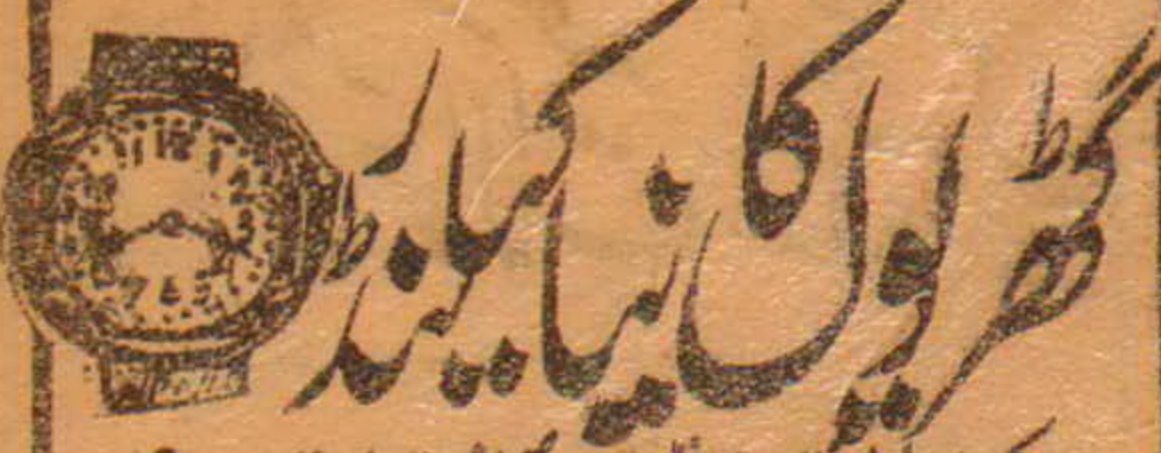 گھڑیوں کا نیا کیلنڈر
12